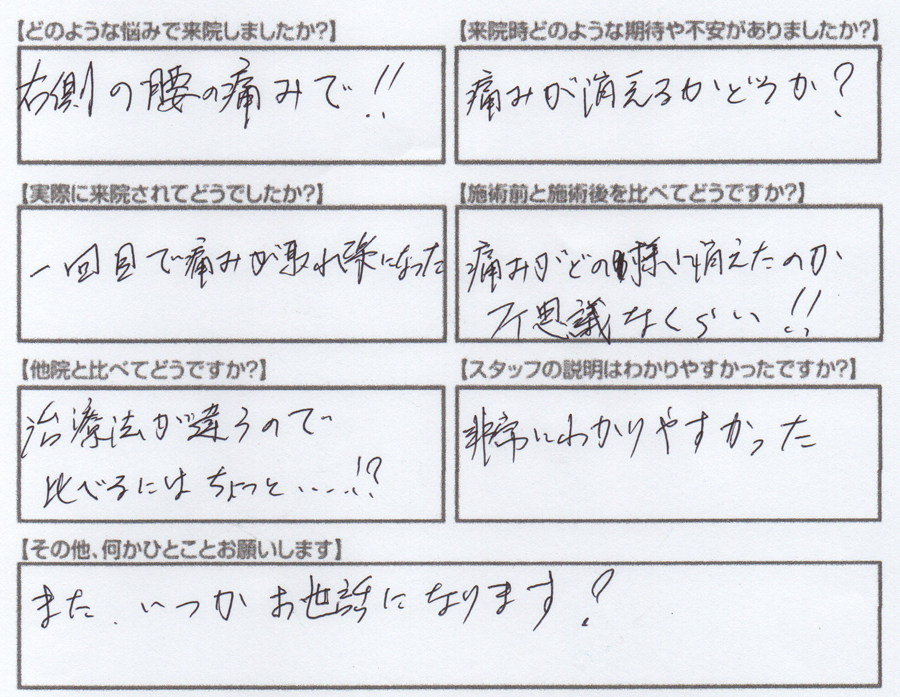 【どのような悩みで来院しましたか?】
右側の腰の痛みで!!
【来院時どのような期待や不安がありましたか?】
痛みが消えるかどうか?
【実際に来院されてどうでしたか?】
一回目で痛みが取れ様になった
【施術前と施術後を比べてどうですか?】
痛みがどの様に消えたのか
不思議なくらい!!
【他院と比べてどうですか?】
治療法が違うので
比べるにはちょっと・・・・・!?
【スタッフの説明はわかりやすかったですか?】
非常にわかりやすかった
【その他、何かひとことお願いします】
また、いつかお世話になります?